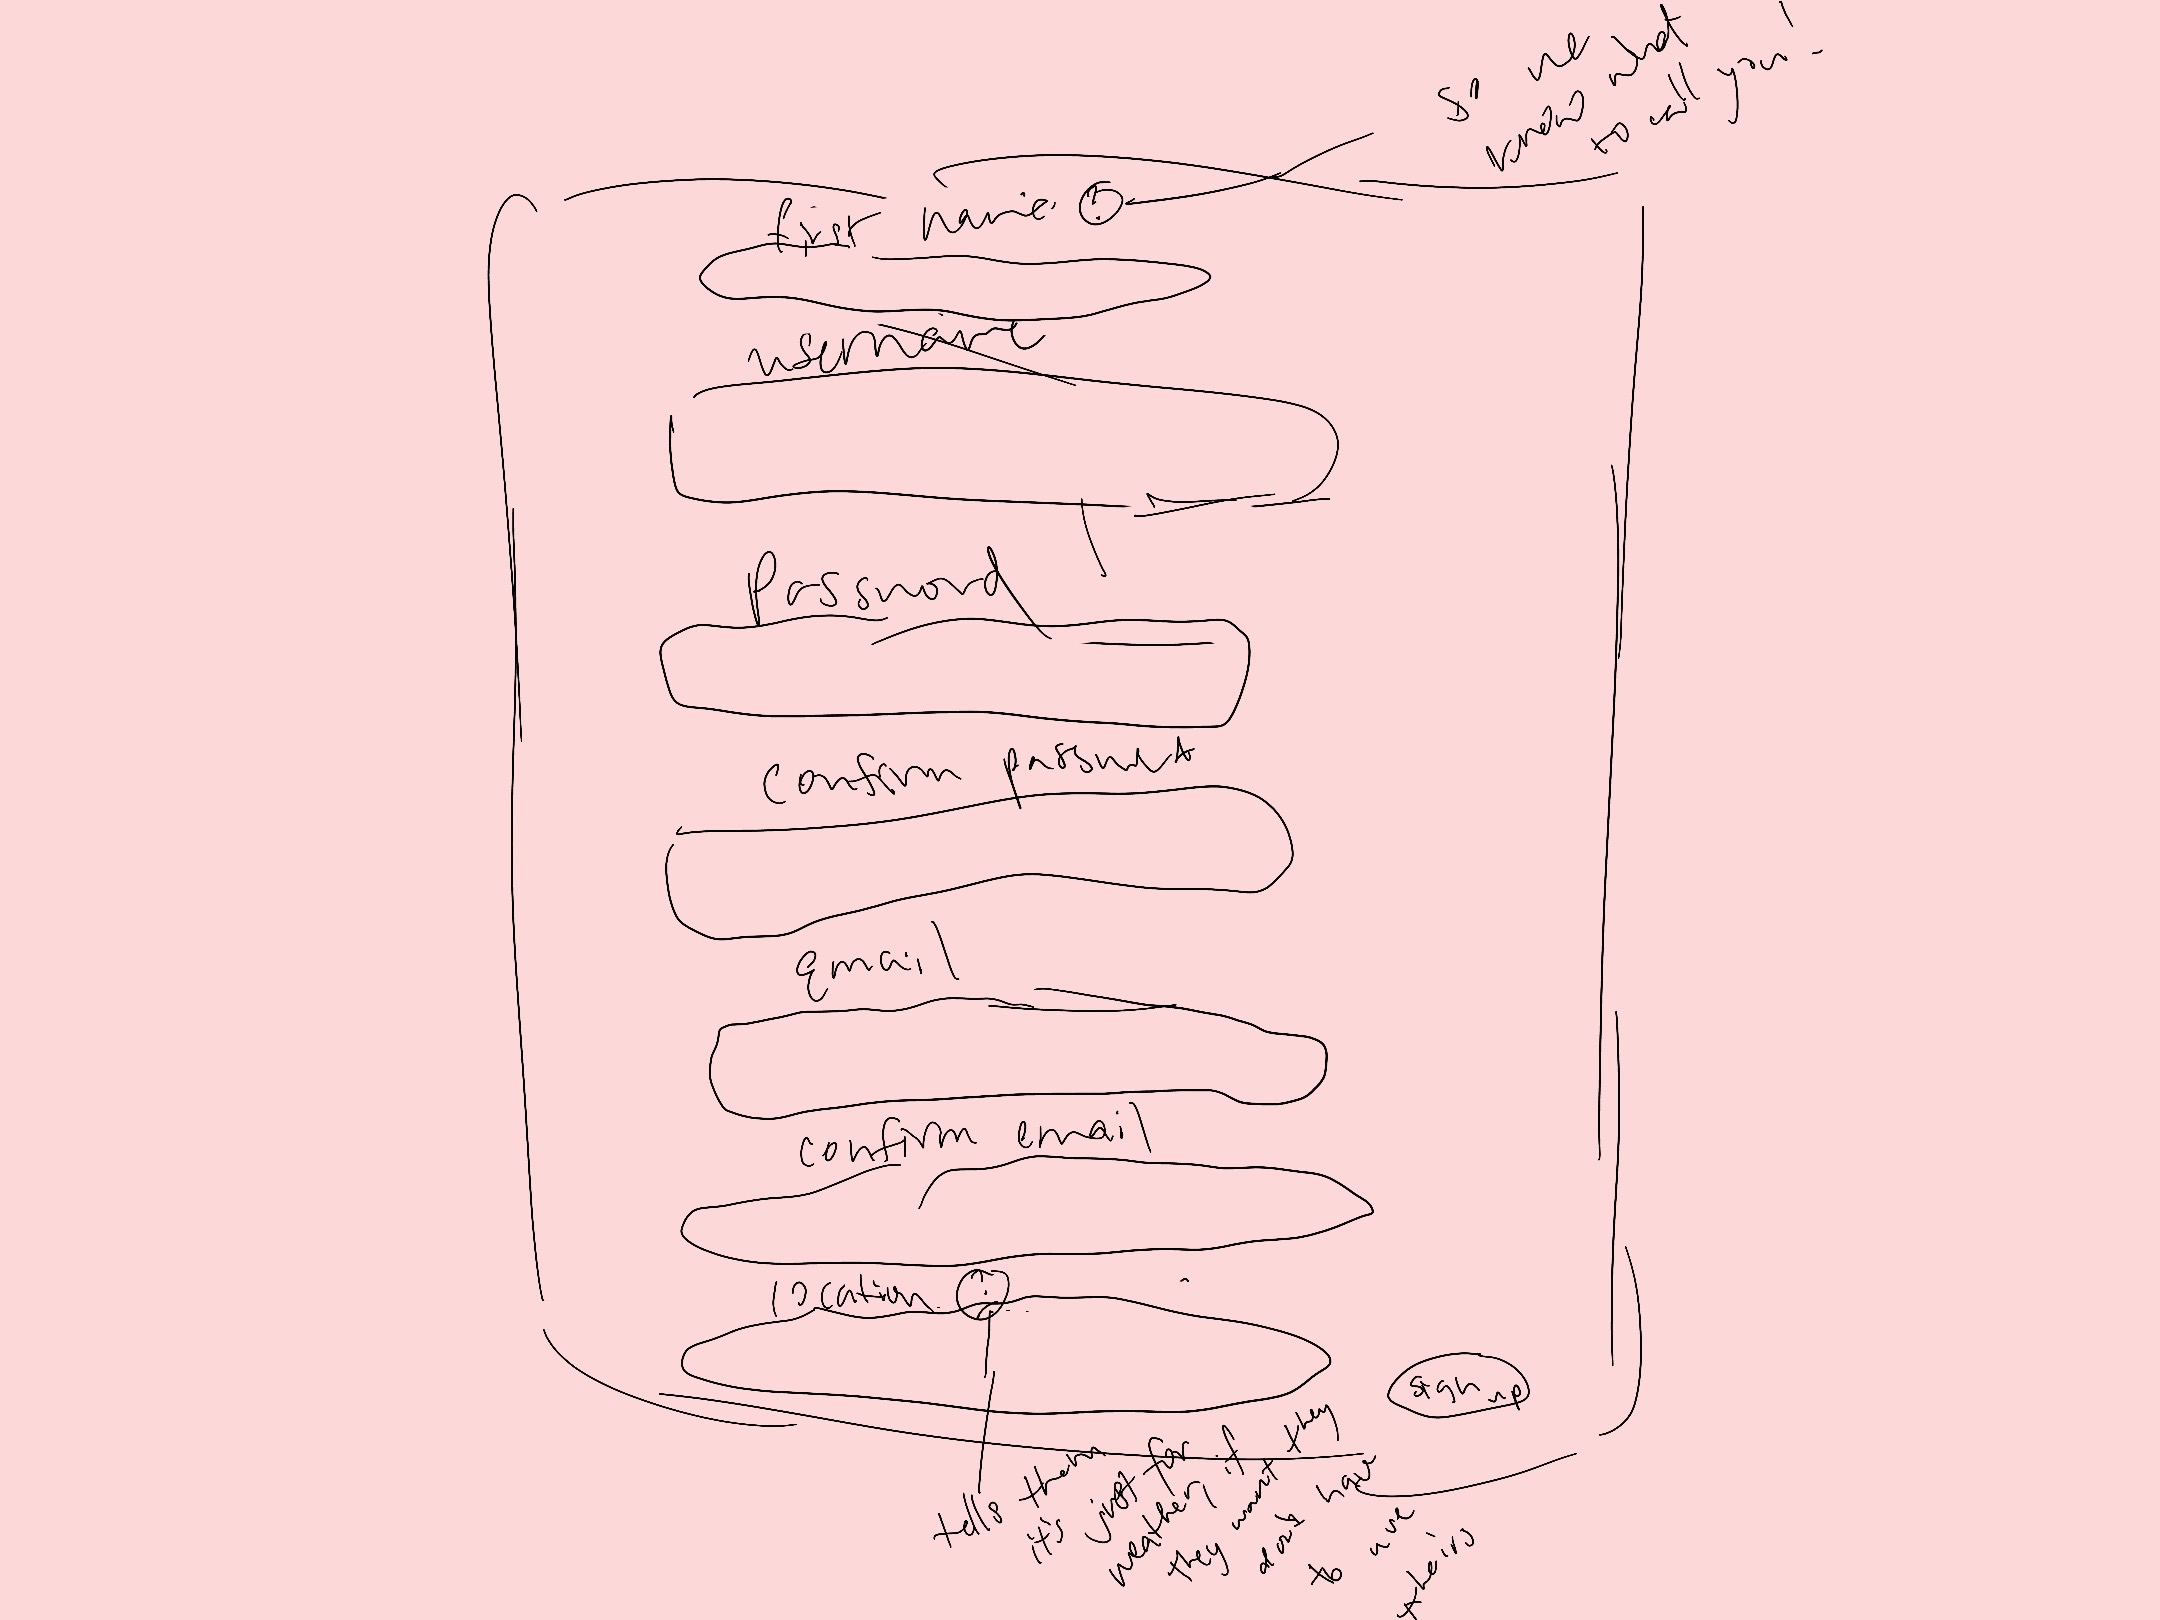 so we
know what
to call you!
first name ?
username
Password
confirm password
email
confirm email
location ?
sign up
tells them
it's just for
weather, if
they want they
don't have
to use
theirs